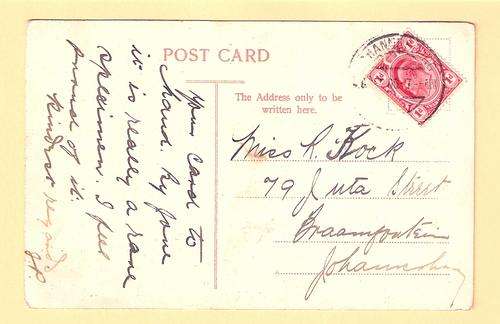 POST CARD
The Address only to be
written here.
Your Card to
hand. By Jove
it is really a rare
specimen I feel
proud of it.
Kindest regards
J.P.
Miss R. Kock
79 Juta Street
Braamfontein
Johannesburg